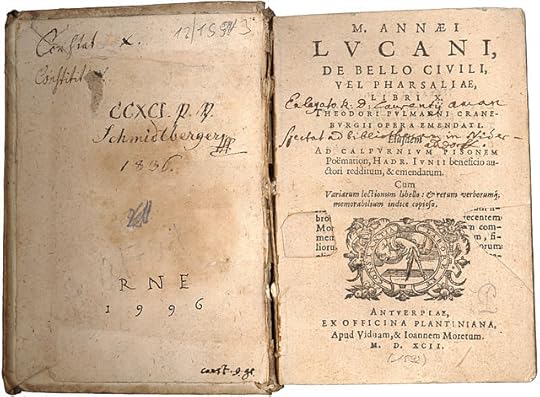 Constat x.
12/1994
Constitit
CCXCI. P. P.
Schmidtbergery
1836.
RNE
1996
const. 9 gr
M. ANNÆI
LVCANI,
DE BELLO CIVILI,
VEL PHARSALIAE,
LIBRI X.
Ex legato R. D. Laurentij
THEODORI PVLMANNI CRANE-
BVRGII OPERA EMENDATI.
Spectat ad bibliothecam in
Eiusdem
AD CALPVRNIVM PISONEM
Poëmation, HADR. IVNII beneficio au-
ctori redditum, & emendatum.
Cum
Variarum lectionum libello: & rerum verborumq́,
memorabilium indice copioso.
ANTVERPIAE,
EX OFFICINA PLANTINIANA,
Apud Viduam, & Ioannem Moretum.
M. D. XCII.
(1592)